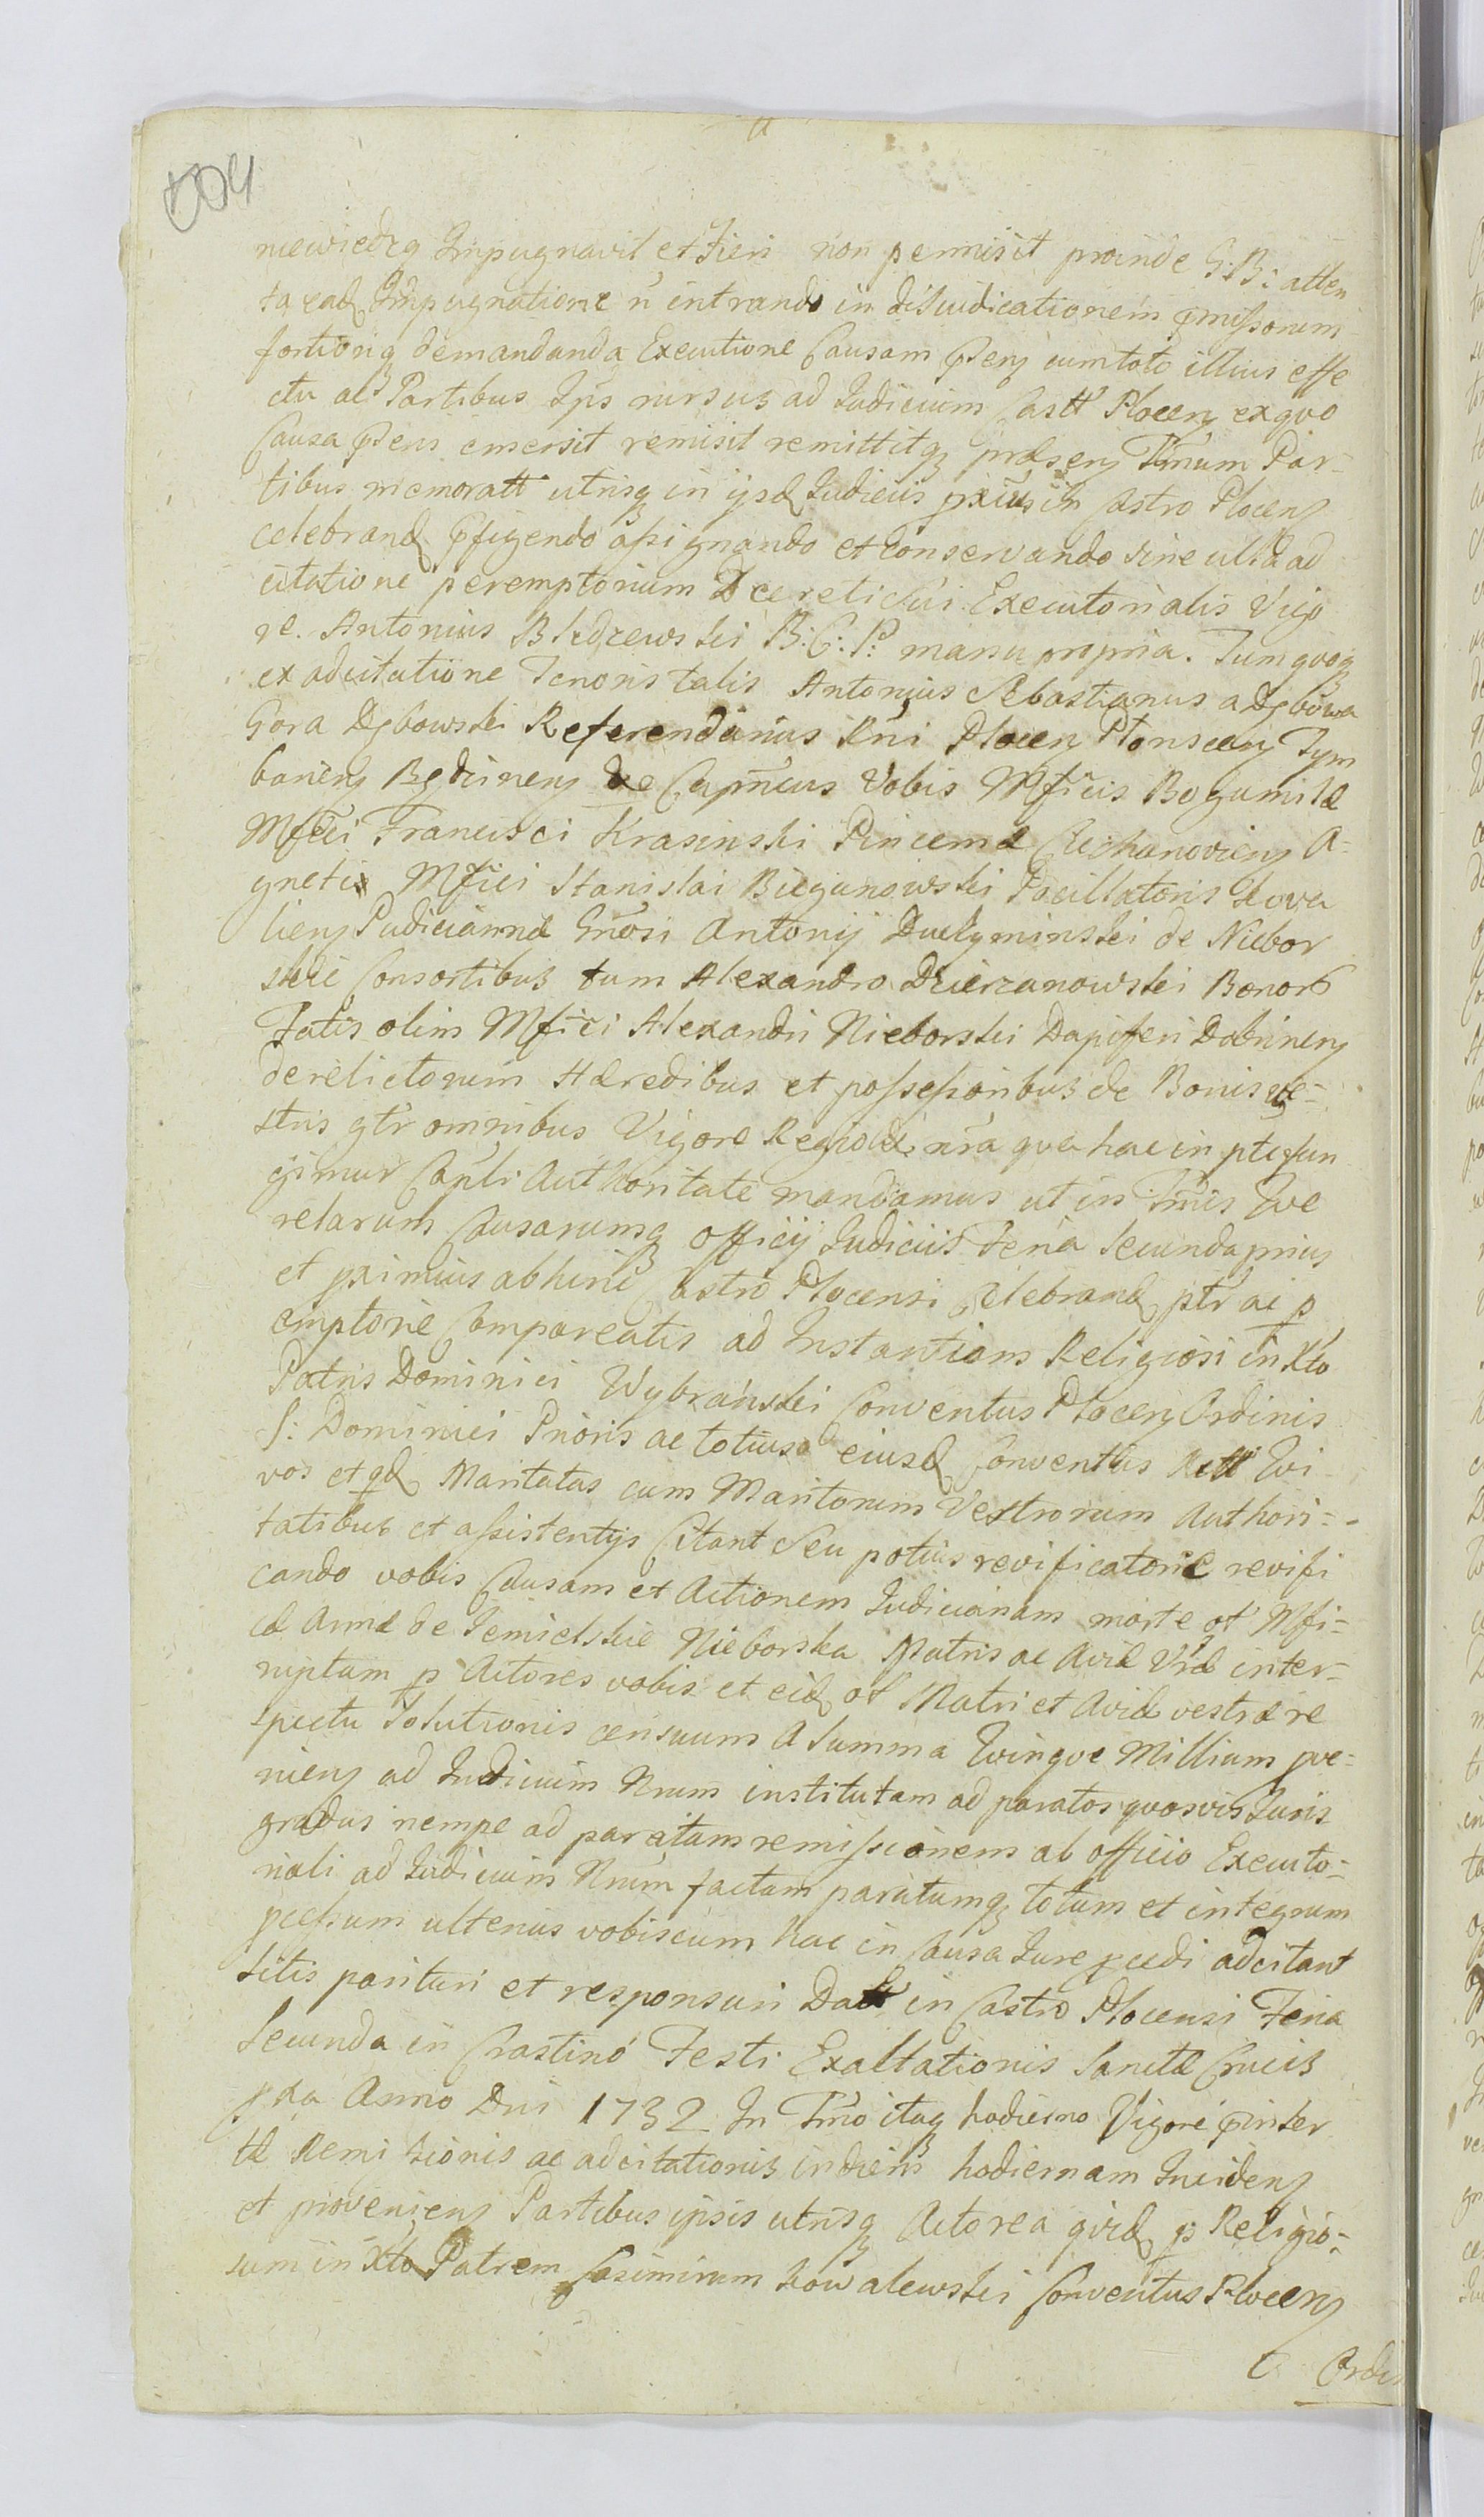 niewiedzą Impugnavit et Fieri non permisit proinde G: B: atten
ta eadą Impugnatione n̄ intrando in dijudicationem pmissorum
fortioriq demandanda Executione Causam psens cum toto illius effe
ctu ac Partibus Ips rursus ad Judicium Castt Plocens exquo
Causa psens emersit remisit remittitq præsens Tmum Par-
tibus memoratt utrisq in ijsd Judicijs pxius in Castro Plocens
celebrand pfigendo assignando et conservando sine ulla ad
citatione peremptorium Decreti sui Executorialis Vigo
re. Antonius Bledzewski B: G: P: manu propria. Tum quoq
ex adcitatione Tenoris talis Antonius Sebastianus a Dębowa
Gora Dębowski Referendarius Rni Plocens Plonscens Tym
bariens Będzinens de Capneus Vobis Mficis Bogumilæ
Mfici Francisci Krasinski Pincernæ Ciechanoviens A=
gnetis Mfici Stanislai Bieganowski Pocillatoris Kowa
liens Judiciannæ Gnosi Antonij Duczyminski de Niebor
skie Consortibus tum Alexandro Dzierzanowski Bonor
Fatis olim Mfici Alexandri Nieborski Dapiferi Dobrinens
derelictorum Hæredibus et possessoribus de Bonis ve=
stris gtr omnibus Vigore Regia nra qua hac in pte fun
gimur Capli Authoritate mandamus ut in Tmis Que
relarum Causarumq Officij Judiciis Feria secunda prius
et pximius abhinc Castro Plocensi Celebrand ptr ac p
emptorie Compareatis ad Instantiam Religiosi in Xto
Patris Dominici Wybranski Conventus Plocens Ordinis
S: Dominici Prioris ac totius eiusd Conventus Rett Qui
vos et qd Maritatas cum Maritorum Vestrorum Authori=
tatibus et assistentijs Citant Seu potius revificatorie revifi
cando vobis Causam et Actionem Judiciariam morte ol Mfi=
cæ Annæ de Jemielskie Nieborska Matris ac Aviæ Vræ inter=
ruptam p Actores vobis et eid ol Matri et Aviæ vestræ re
spectu Solutionis censuum a Summa Quinque Millium pve=
niens ad Judicium Nrum institutam ad paratos quosvis Juris
gradus nempe ad paratam remissionem ab officio Executo=
riali ad Judicium Nrum factam paratumq totum et integrum
pcessum ulterius vobiscum hac in Causa Jure pcedi adcitant
sitis parituri et responsuri Datt in Castro Plocensi Feria
Secunda in Crastino Festi Exaltationis Sanctæ Crucis
pxa Anno Dni 1732 In Tmo itaq hodierno Vigore pinser
tæ Remissionis ac adcitationis in diem hodiernam Incidens
et proveniens Partibus ipsis utrisq Actorea quid p Religio=
sum in Xto Patrem Casimirum Kowalewski Conventus Plocens
Ordi